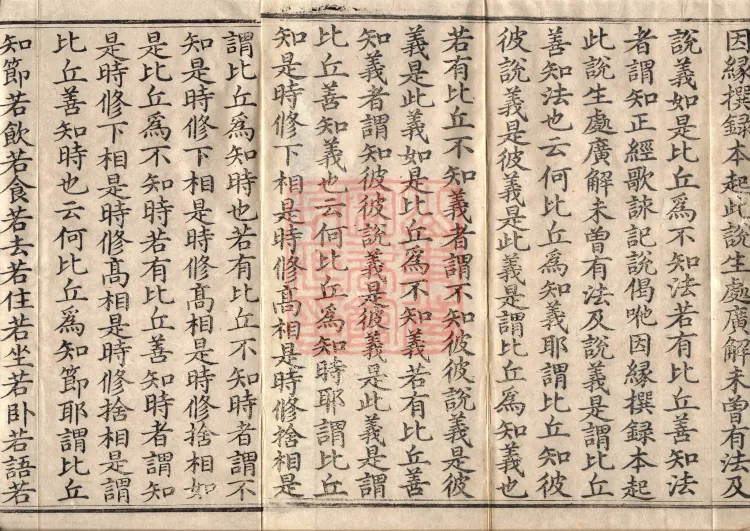 因緣撰録本起此說生處廣解未曾有法及
說義如是比丘爲不知法若有比丘善知法
者謂知正經歌詠記說偈咃因緣撰録本起
此說生處廣解未曾有法及說義是謂比丘
善知法也云何比丘爲知義耶謂比丘知彼
彼說義是彼義是此義是謂比丘爲知義也
若有比丘不知義者謂不知彼彼說義是彼
義是此義如是比丘爲不知義若有比丘善
知義者謂知彼彼說義是彼義是此義是謂
比丘善知義也云何比丘爲知時耶謂比丘
知是時修下相是時修高相是時修捨相是
謂比丘爲知時也若有比丘不知時者謂不
知是時修下相是時修高相是時修捨相如
是比丘爲不知時若有比丘善知時者謂知
是時修下相是時修高相是時修捨相是謂
比丘善知時也云何比丘爲知節耶謂比丘
知節若飲若食若去若住若坐若卧若語若